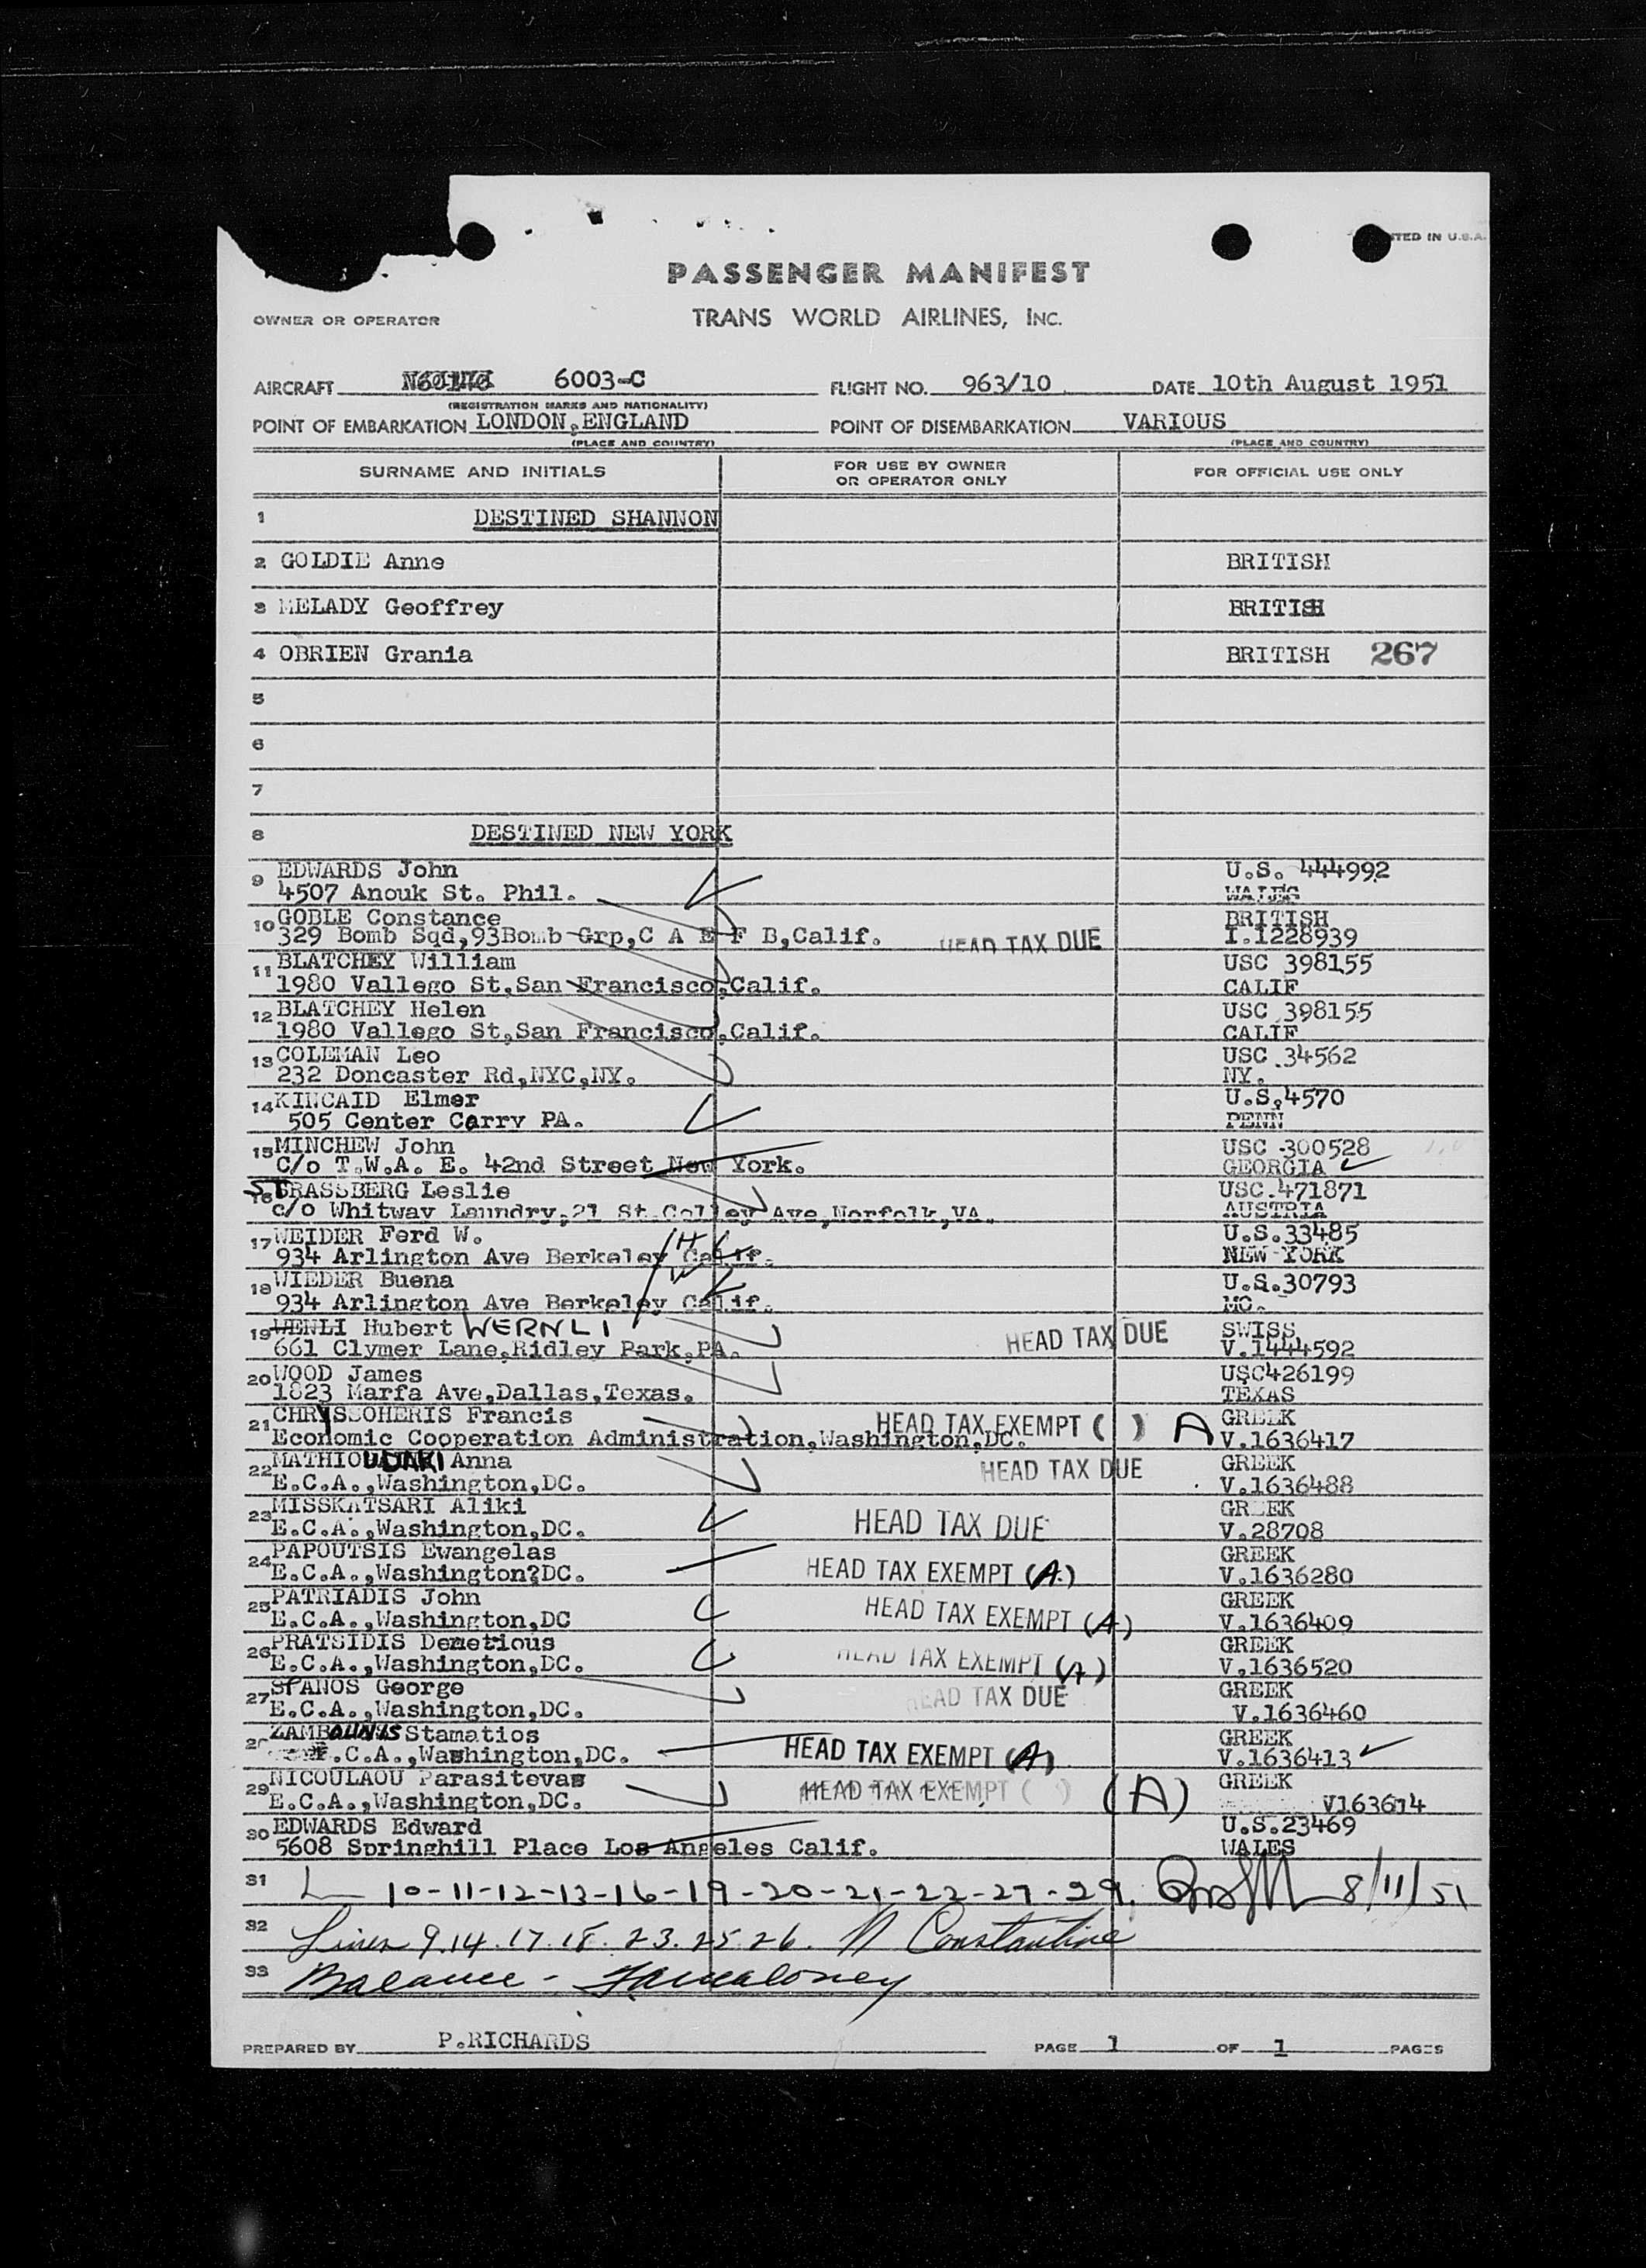 TED IN U.S.A.
PASSENGER MANIFEST
OWNER OR OPERATOR
TRANS WORLD AIRLINES, INC.
AIRCRAFT 6003-C FLIGHT NO. 963/10 DATE 10th August 1951
(REGISTRATION MARKS AND NATIONALITY)
POINT OF EMBARKATION LONDON,ENGLAND POINT OF DISEMBARKATION VARIOUS
(PLACE AND COUNTRY) (PLACE AND COUNTRY)
SURNAME AND INITIALS FOR USE BY OWNER OR OPERATOR ONLY FOR OFFICIAL USE ONLY
1 DESTINED SHANNON
2 GOLDIE Anne BRITISH
3 MELADY Geoffrey BRITISH
4 OBRIEN Grania BRITISH 267
5
6
7
8 DESTINED NEW YORK
9 EDWARDS John U.S. 444992
4507 Anouk St. Phil. WALES
10 GOBLE Constance BRITISH
329 Bomb Sqd,93Bomb Grp,C A E F B,Calif. HEAD TAX DUE I.1228939
11 BLATCHEY William USC 398155
1980 Vallego St,San Francisco,Calif. CALIF
12 BLATCHEY Helen USC 398155
1980 Vallego St,San Francisco,Calif. CALIF
13 COLEMAN Leo USC .34562
232 Doncaster Rd,NYC,NY. NY.
14 KINCAID Elmer U.S.4570
505 Center Carry PA. PENN
15 MINCHEW John USC .300528
C/o T.W.A. E. 42nd Street New York. GEORGIA
16 STRASSBERG Leslie USC.471871
c/o Whitway Laundry,21 St.Colley Ave,Norfolk,VA. AUSTRIA
17 WEIDER Ferd W. U.S.33485
934 Arlington Ave Berkeley Calif. H NEW YORK
18 WIEDER Buena U.S.30793
934 Arlington Ave Berkeley Calif. W MO.
19 WENLI Hubert WERNLI SWISS
661 Clymer Lane,Ridley Park,PA. HEAD TAX DUE V.1444592
20 WOOD James USC426199
1823 Marfa Ave,Dallas,Texas. TEXAS
21 CHRYSSOHERIS Francis HEAD TAX EXEMPT ( ) A GREEK
Economic Cooperation Administration,Washington,DC. V.1636417
22 MATHIOUDAKI Anna HEAD TAX DUE GREEK
E.C.A.,Washington,DC. V.1636488
23 MISSKATSARI Aliki GREEK
E.C.A.,Washington,DC. HEAD TAX DUE V.28708
24 PAPOUTSIS Ewangelas GREEK
E.C.A.,Washington?DC. HEAD TAX EXEMPT (A) V.1636280
25 PATRIADIS John GREEK
E.C.A.,Washington,DC HEAD TAX EXEMPT (A) V.1636409
26 PRATSIDIS Demetious GREEK
E.C.A.,Washington,DC. HEAD TAX EXEMPT (A) V.1636520
27 SPANOS George HEAD TAX DUE GREEK
E.C.A.,Washington,DC. V.1636460
28 ZAMBOUNIS Stamatios GREEK
E.C.A.,Washington,DC. HEAD TAX EXEMPT (A) V.1636413
29 NICOULAOU Parasitevas GREEK
E.C.A.,Washington,DC. HEAD TAX EXEMPT ( ) (A) V163614
30 EDWARDS Edward U.S.23469
5608 Springhill Place Los Angeles Calif. WALES
31 L 10-11-12-13-16-19-20-21-22-27-29. 8/11/51
32 Lines 9.14.17.18.23.25.26. N Constantine
33 Balance -
PREPARED BY P.RICHARDS PAGE 1 OF 1 PAGES